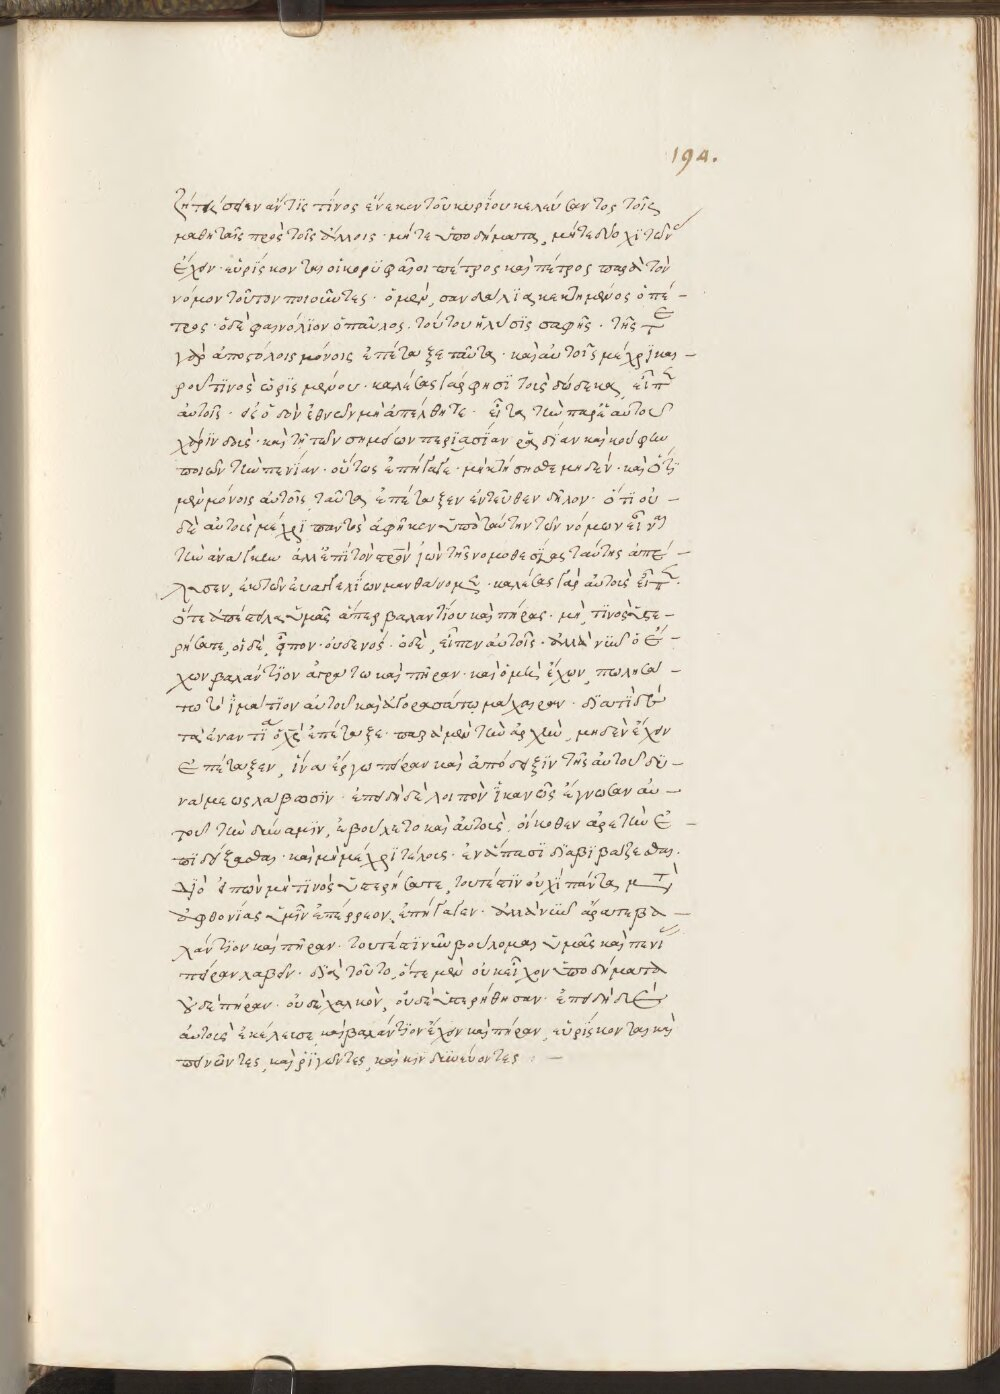 194.
ζητήσειεν ἄν τϊς τίνος ἕνεκεν τοῦ κυρίου κελεύσαντος τοῖς
μαθηταῖς πρὸς τοῖς ἄλλοις · μήτε ὑποδήματα, μήτε δύο χϊτῶν
ἔχειν · εὑρίσκονται οἱ κορυφαῖοι πέτρος καὶ πέτρος παρὰ τὸν
νόμον τοῦτον ποιοῦντες · ὁ μὲν, σανδάλϊα κεκτημένος ὁ πέ –
τρος · ὁ δὲ φαινόλϊον ὁ παῦλος · τούτου ἡ λύσϊς σαφής · τῆς
γὰρ ἀποστόλοις μόνοις ἐπέταξε ταῦτα · καὶ αὐτοῖς μέχρϊ και –
ροῦ τϊνὸς ὡρϊσμένου · καλέσας γάρ φησϊ τοὺς δώδεκα, εἶπ
αὐτοῖς · εἰς ὁδὸν ἐθνῶν μὴ ἀπέλθητε · εἶτα τὴν παρ' ἑαυτοῦ
χάρϊν δοὺς · καὶ τῇ τῶν σημείων περϊ ῥᾳδίαν καὶ κούφην
ποιῶν τὴν πενίαν · οὕτως ἐπήγαγε · μὴ κτήσησθε μηδέν · καὶ ὅτϊ
μὲν μόνοις αὐτοῖς ταῦτα ἐπέταξεν ἐντεῦθεν δῆλον · ὅτϊ οὐ –
δὲ αὐτοὺς μέχρϊ παντὸς ἀφῆκεν ὑπὸ ταύτην τῶν νόμων εἶν
τὴν ἀνάγκην ἀλλ' ἐπὶ τὸν προϊὼν τῆς νομοθεσίας ταύτης ἀπέ –
λυσεν, ἐκ τῶν εὐαγγελίων μανθάνομ · καλέσας γὰρ αὐτοὺς εἶπ ·
ὅτε ἀπέστειλα ὑμᾶς ἄτερ βαλαντίου καὶ πήρας · μή τϊνος ὑστε –
ρήσατε, οἱ δὲ, εἶπον · οὐδενός · ὁ δὲ, εἶπεν αὐτοῖς · ἀλλὰ νῦν ὁ ἔ –
χων βαλάντϊον ἀράτω καὶ πήραν · καὶ ὁ μὴ ἔχων, πωλησά –
τω τὸ ἱμάτϊον αὐτοῦ καὶ ἀγορασάτω μάχαιραν · δϊατί δὲ
τὰ ἐναντί ἐπέταξε · παρὰ μὲν τὴν ἀρχὴν, μηδὲν ἔχειν
ἐπέταξεν, ἵνα ἔργω πεῖραν καὶ ἀπόδειξϊν τῆς αὐτοῦ δυ –
νάμεως λάβωσϊν · ἐπειδὴ δὲ λοιπὸν ἱκανῶς ἔγνωσαν αὐ –
τοῦ τὴν δύναμϊν, ἐβούλετο καὶ αὐτοὺς, οἴκοθεν ἀρετὴν ἐ –
πϊδείξασθαι · καὶ μὴ μέχρϊ τέλους · ἐν ἅπασϊ δϊαβϊβάζεσθαι ·
δϊὸ εἰπὼν μή τϊνος ὑστερήσατε, τουτέστϊν οὐχὶ πάντα
ἀφθονίας ὑμῖν ἐπέρρεον, ἐπήγαγεν · ἀλλὰ νῦν ἄρατε βα –
λάντϊον καὶ πήραν · τουτέστϊ νῦν βούλομαι ὑμᾶς καὶ πενί
πεῖραν λαβεῖν · δϊὰ τοῦτο, ὅτε μὲν οὐκ εἶχον ὑποδήματα
οὐδὲ πήραν · οὐδὲ χαλκὸν, οὐδὲ ὑστερήθησαν · ἐπειδὴ δὲ
αὐτοὺς ἐκέλευσε, καὶ βαλάντϊον ἔχειν καὶ πήραν, εὑρίσκονται καὶ
πεινῶντες, καὶ ῥϊγῶντες, καὶ κϊνδυνεύοντες : –